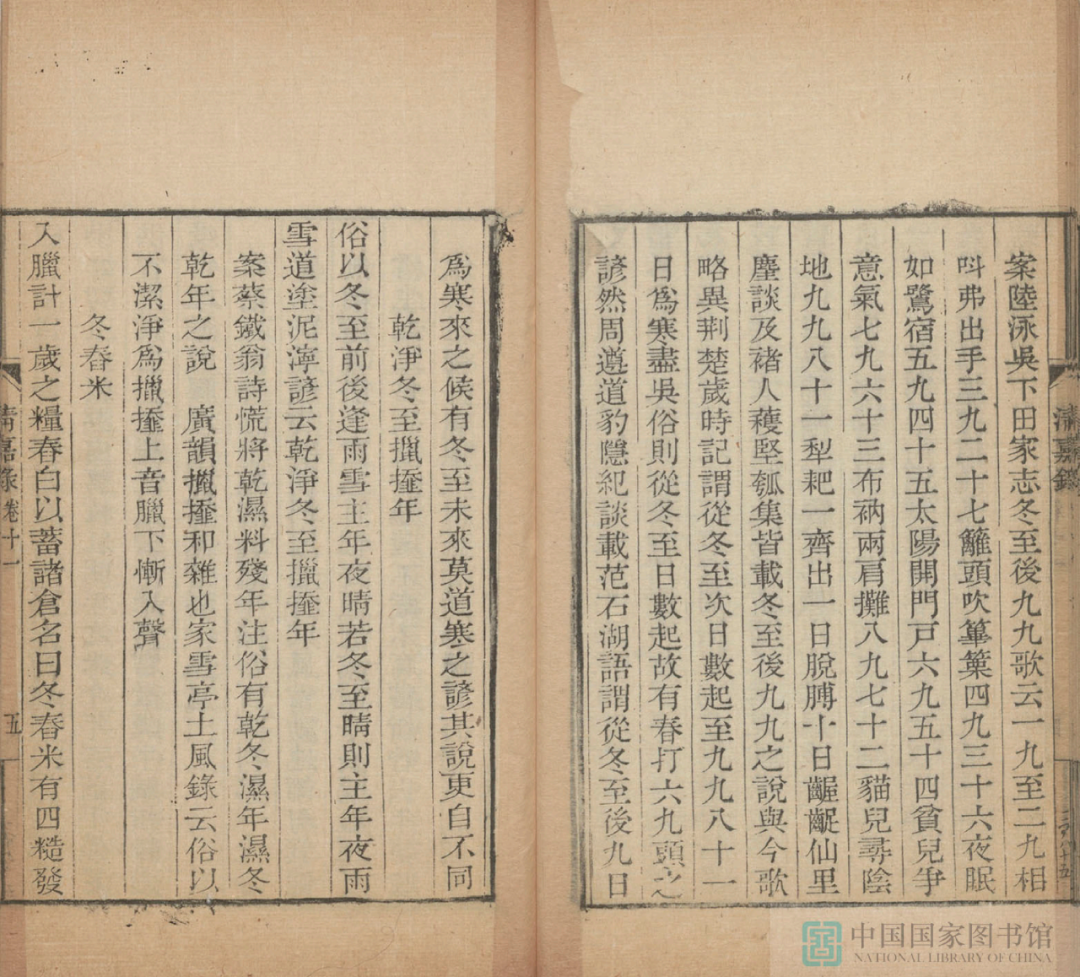 案陸泳吳下田家志冬至後九九歌云一九至二九相
呌弗出手三九二十七籬頭吹篳篥四九三十六夜眠
如鷺宿五九四十五太陽開門戸六九五十四貧兒爭
意氣七九六十三布衲兩肩攤八九七十二貓兒尋陰
地九九八十一犁耙一齊出一日脫膊十日齷齪仙里
麈談及禇人穫堅瓠集皆載冬至後九九之說與今歌
略異荆楚歲時記謂從冬至次日數起至九九八十一
日爲寒盡吳俗則從冬至日數起故有春打六九頭之
諺然周遵道豹隱紀談載范石湖語謂從冬至後九日
爲寒來之候有冬至未來莫道寒之諺其說更自不同
乾淨冬至攋𢶍年
俗以冬至前後逢雨雪主年夜晴若冬至晴則主年夜雨
雪道塗泥濘諺云乾淨冬至攋𢶍年
案蔡鐵翁詩慌將乾濕料殘年注俗有乾冬濕年濕冬
乾年之說 廣韻攋𢶍和雜也家雪亭土風錄云俗以
不潔淨爲攋𢶍上音臘下慚入聲
冬舂米
入臘計一歲之糧舂白以蓄諸倉名曰冬舂米有四糙發
清嘉錄
清嘉錄 卷十一 五
中国国家图书馆
NATIONAL LIBRARY OF CHINA